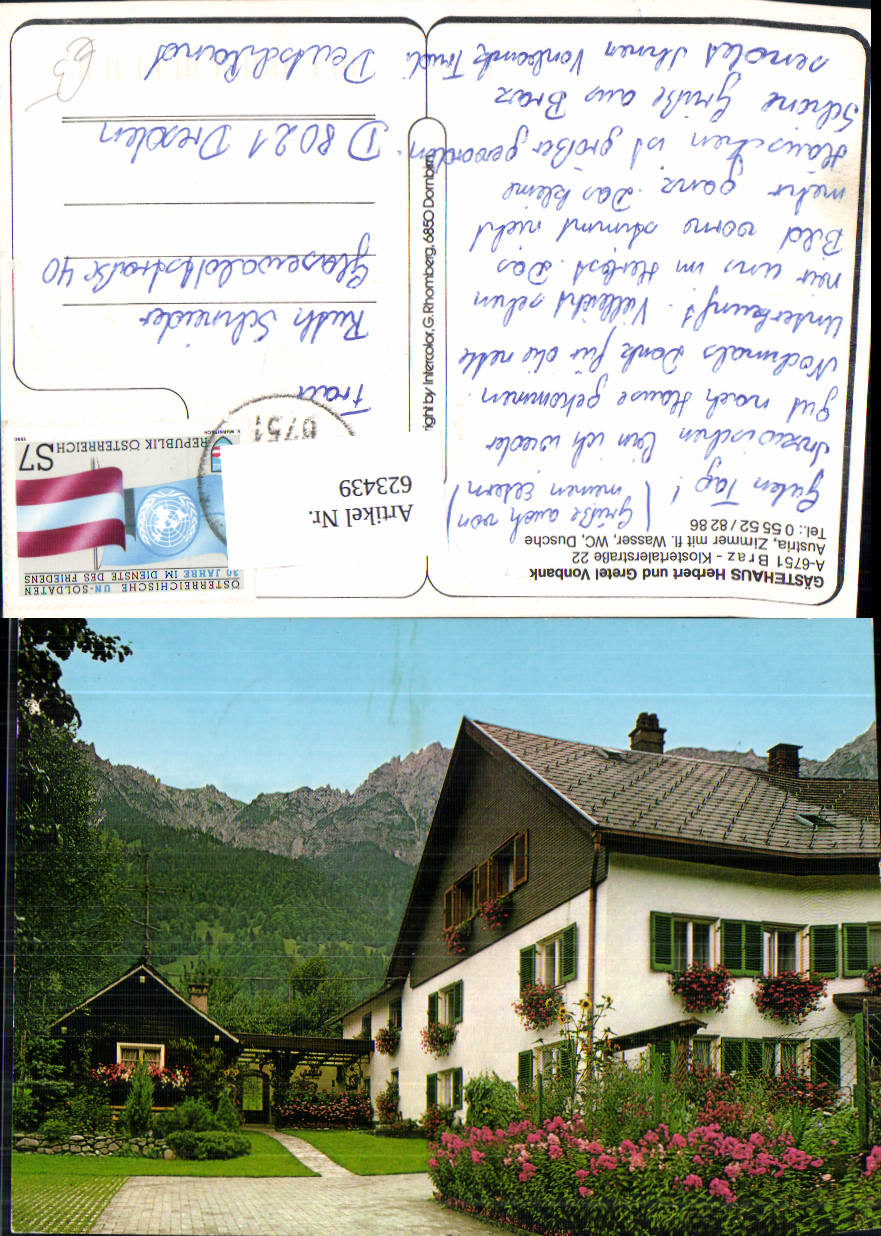 GÄSTEHAUS Herbert und Gretel Vonbank
A-6751 Braz - Klostertalerstraße 22
Austria, Zimmer mit fl. Wasser, WC, Dusche
Tel.: 0 55 52 / 82 86
Guten Tag! (Grüße auch von
meinen Eltern)
Inzwischen bin ich wieder
gut nach Hause gekommen.
Nochmals Dank für die nette
Unterkunft. Vielleicht sehen
wir uns im Herbst. Das
Bild vorne stimmt nicht
mehr ganz. Das kleine
Häuschen ist größer geworden.
Schöne Grüße aus Braz
sendet Ihnen Vonbank Trudi
right by Intercolor, G. Rhomberg, 6850 Dornbirn
Artikel Nr.
623439
ÖSTERREICHISCHE UN-SOLDATEN
30 JAHRE IM DIENSTE DES FRIEDENS
S7
REPUBLIK ÖSTERREICH
1990
6751
Frau
Ruth Schneider
Glasewaldtstraße 40
D 8021 Dresden
Deutschland
€3